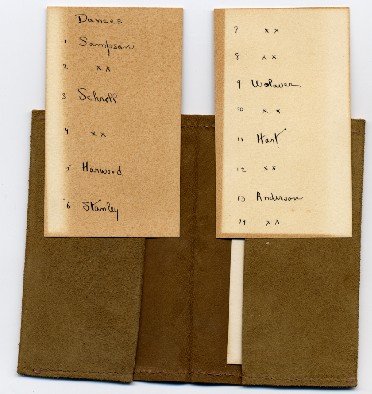 Dances
1 Sampson
2 x x
3 Schroll
4 x x
5 Harwood
6 Stanley
7 x x
8 x x
9 Wolaver
10 x x
11 Hart
12 x x
13 Anderson
14 x x